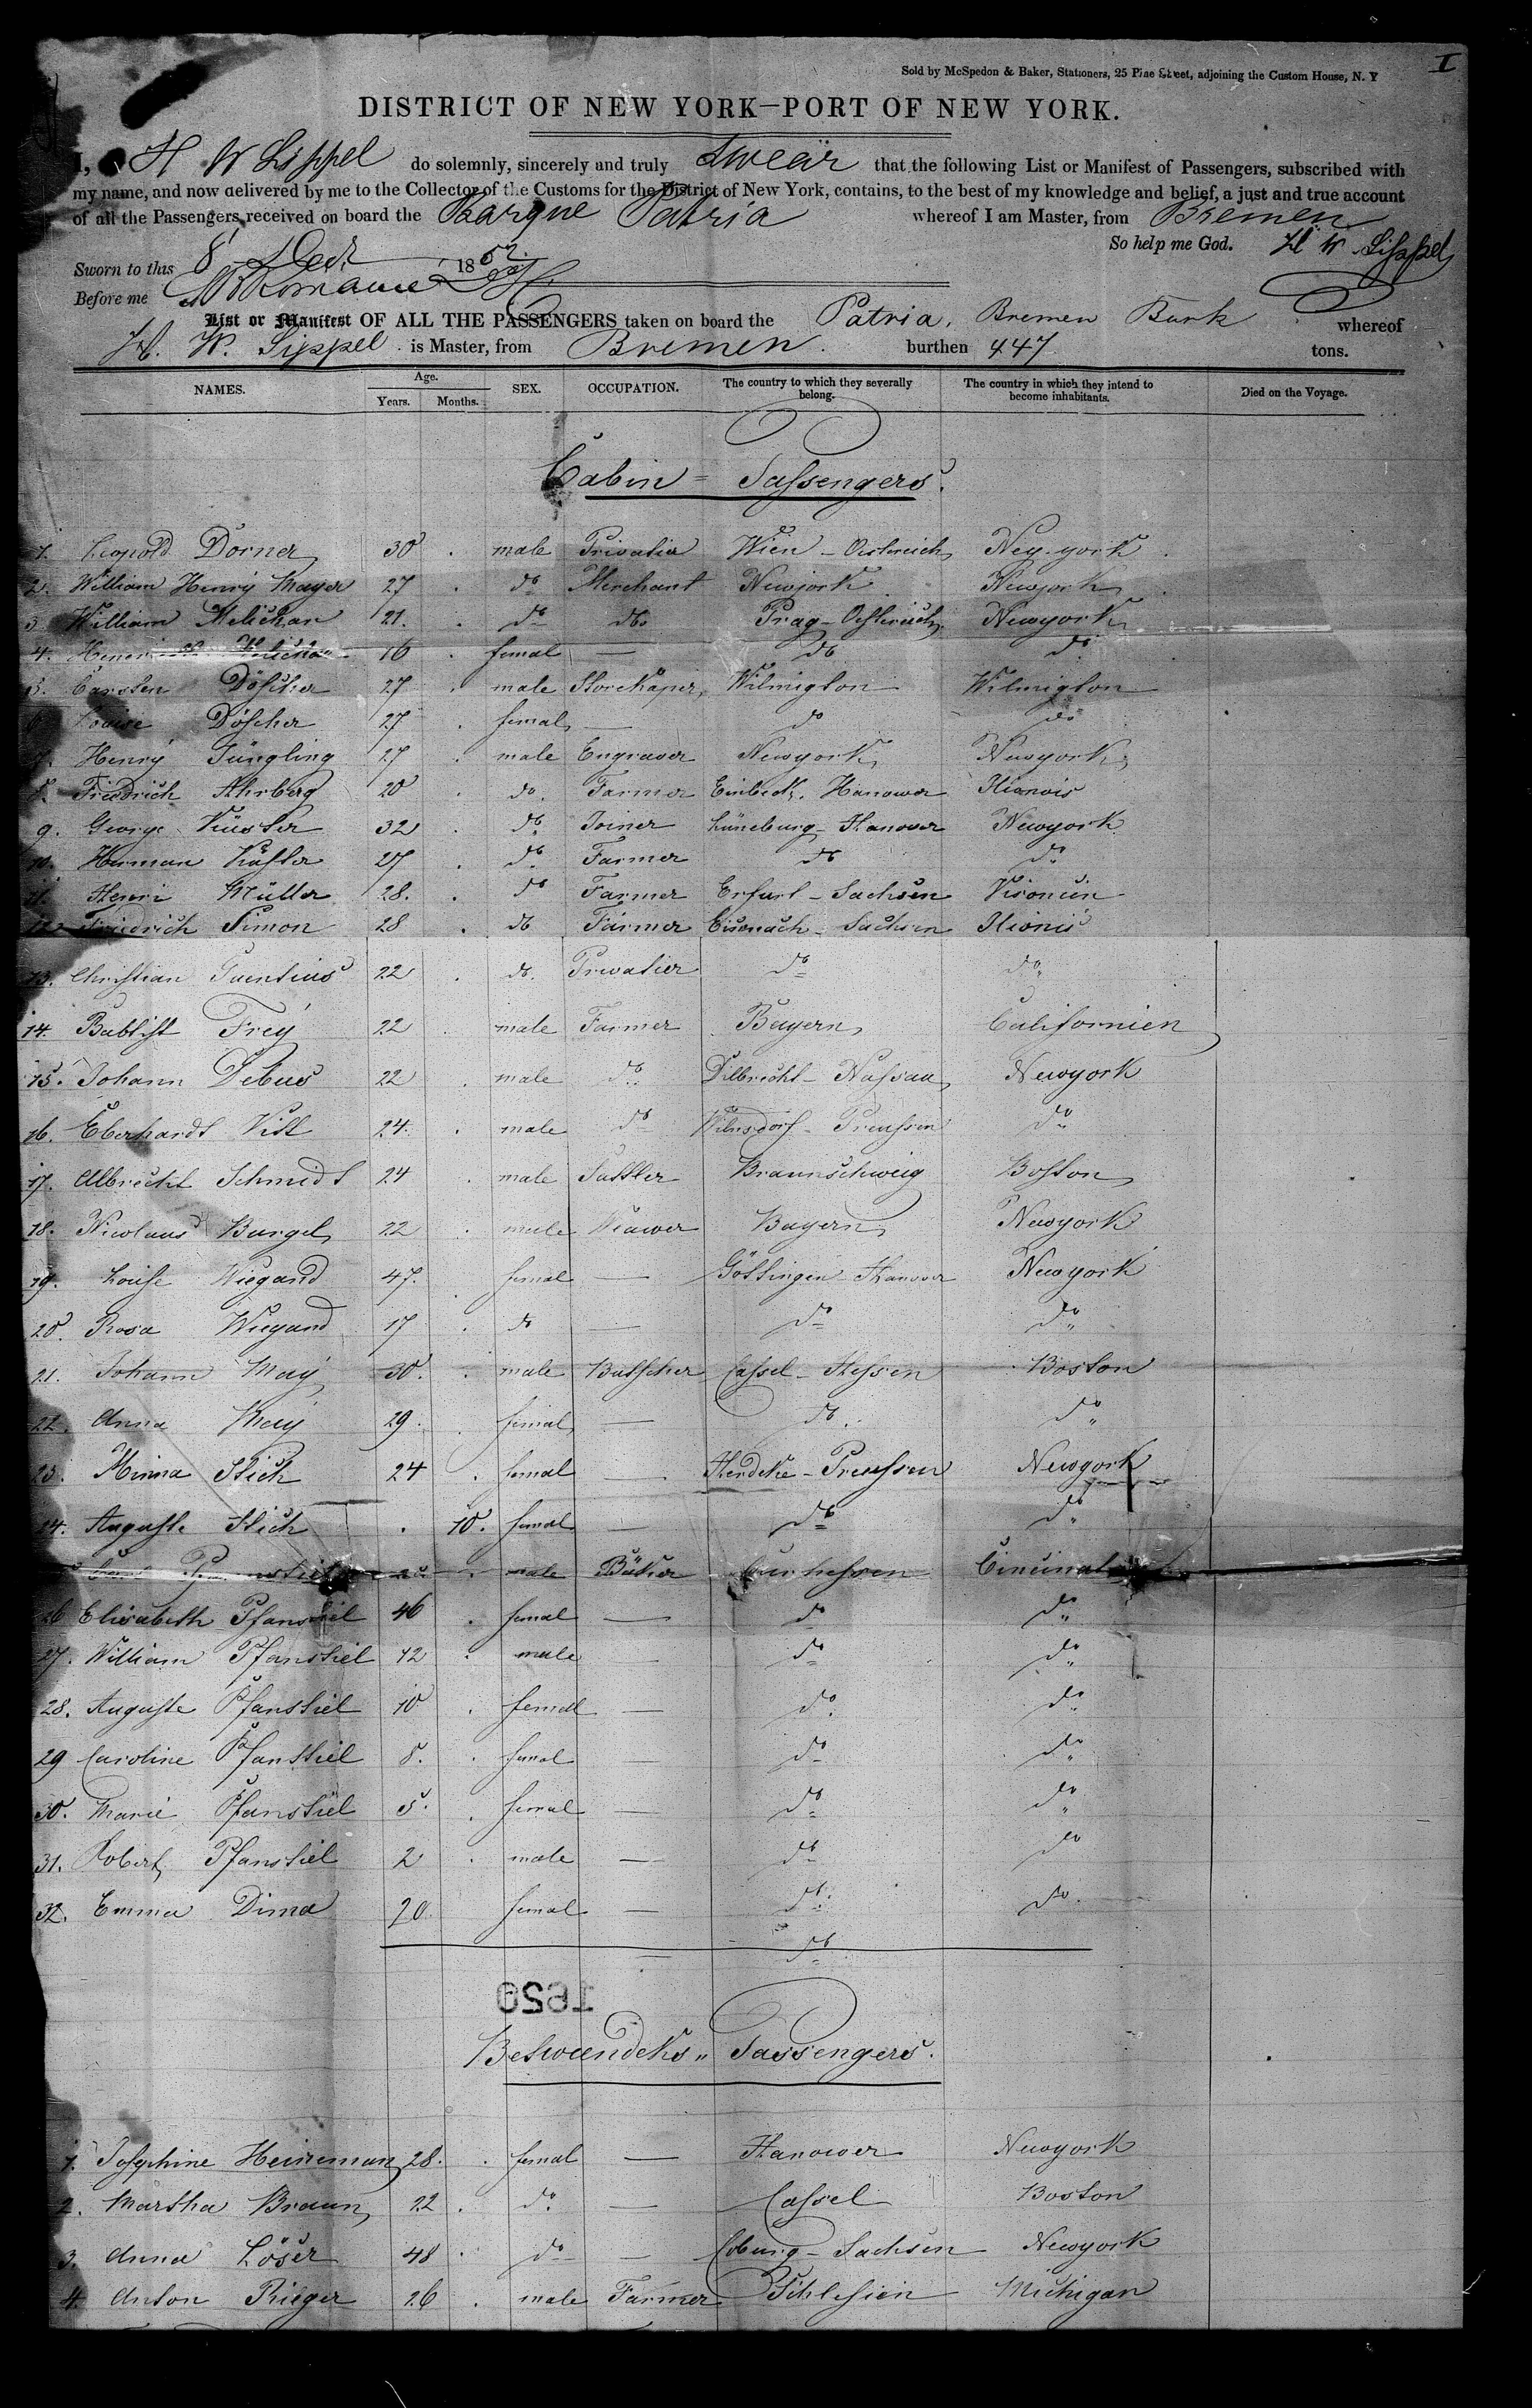 I
Sold by McSpedon & Baker, Stationers, 25 Pine Street, adjoining the Custom House, N. Y
DISTRICT OF NEW YORK—PORT OF NEW YORK.
I, H W Sippel do solemnly, sincerely and truly Swear that the following List or Manifest of Passengers, subscribed with
my name, and now delivered by me to the Collector of the Customs for the District of New York, contains, to the best of my knowledge and belief, a just and true account
of all the Passengers received on board the Barque Patria whereof I am Master, from Bremen
So help me God. H W. Sippel
Sworn to this 8 Oct 1852
Before me
List or Manifest OF ALL THE PASSENGERS taken on board the Patria, Bremen Bark whereof
H. W. Sippel is Master, from Bremen. burthen 447 tons.
NAMES. Age. Years. Months. SEX. OCCUPATION. The country to which they severally belong. The country in which they intend to become inhabitants. Died on the Voyage.
Cabin = Passengers.
1. Leopold Dorner 30 male Privatier Wien - Oestereich Ney-york
2. William Henry Mayer 27 do Merchant Newjork Newjork
3 William Melichar 21. do do. Prag - Oestereich Newyork
4. 16 femal — do do
5. Carsten Döscher 27 male Storekäper Wilmigton Wilmigton
6. Louise Döscher 27 femal — do do
7. Henry Jüngling 27 male Engraver Newyork Newyork
8. Friedrich Ahrberg 20 do. Farmer Einbeck, Hanower Ilionois
9. George Küster 32 do Joiner Lüneburg - Hanover Newyork
10. Herman Küster 27 do Farmer do do
11. Henri Müller 28. do Farmer Erfurt - Sachsen Visonsin
12. Friedrich Simon 28 do Farmer Eisenach - Sachsen Ilionis
13. Christian 22 do. Privatier do do
14. Babtist Frey 22 male Farmer Bayern Californien
15. Johann Debus 22 male do Dilbrecht - Nassau Newyork
16. Eberhardt Vitt 24. male do Wilnsdorf - Preussen do
17. Albrecht Schmidt 24 male Sattler Braunschweig Boston
18. Nicolaus Burgel 22 male Weawer Bayern Newyork
19. Louise Wiegand 47. femal — Göttingen Hanover Newyork
20. Rosa Wiegand 17 do — do do
21. Johann May 30. male Butscher Cassel - Hessen Boston
22. Anna May 29. femal — do do
23. Minna Stich 24 femal — Herdeke - Preussen Newyork
24. Auguste Stich 10. femal — do do
male Bäker Curhessen Cincinat
26 Elisabeth Pfanstiel 46 femal — do do
27. William Pfanstiel 12 male do do
28. Auguste Pfanstiel 10 femal — do do
29 Caroline Pfanstiel 8. femal — do do
30. Marie Pfanstiel 5. femal — do do
31. Robert Pfanstiel 2 male — do do
32. Emma Dima 20. femal — do do
— do
1659
Betweendeks" Passengers.
1. Josephine Heineman 28. femal — Hanower Newyork
2. Martha Braun 22 do — Cassel Boston
3. Anna Löser 48 do — Coburg - Sachsen Newyork
4. Anton Rieger 26 male Farmer Schlesien Michigan